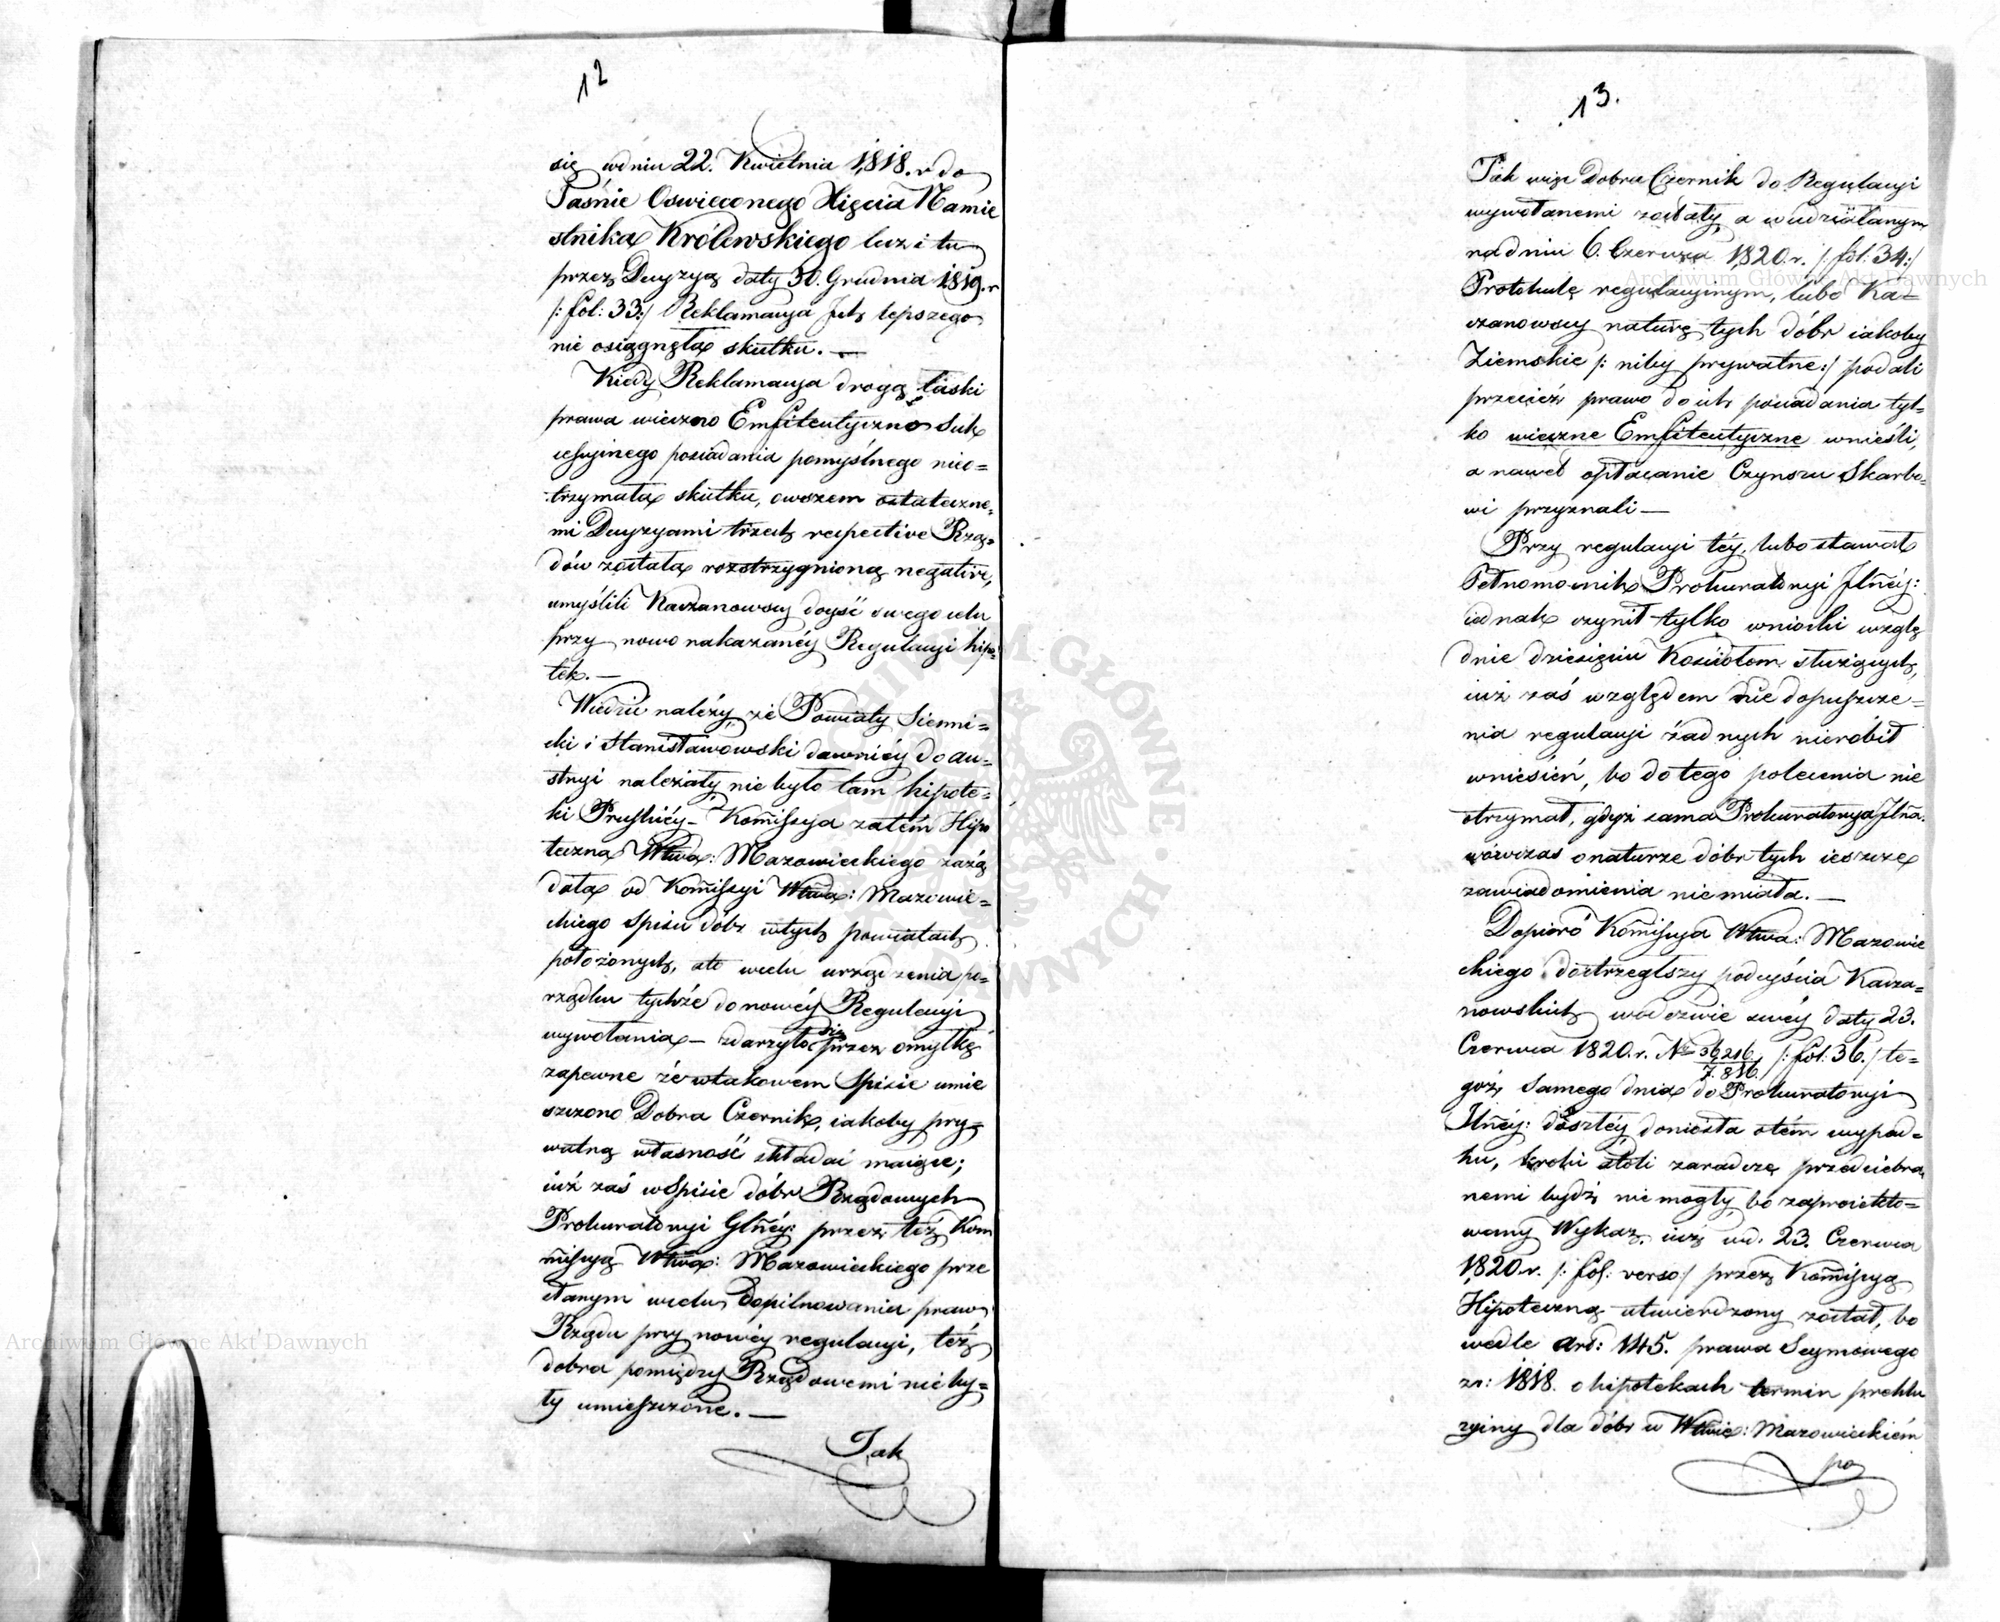 12
się w dniu 22. Kwietnia 1818. r do
Jaśnie Oswieconego Xięcia Namie
stnika Królewskiego lecz i tu
przez Decyzyą daty 30. Grudnia 1819. r
/: fol: 33:/ Reklamacya Ich lepszego
nie osiągnęła skutku. —
Kiedy Reklamacya drogą łaski
prawa wieczno Emfiteutyczno Suk
cessyinego posiadania pomyślnego nieo=
trzymała skutku, owszem ostateczne=
mi Decyzyami trzech respective Rzą=
dów została rozstrzygnioną negative,
umyślili Kaczanowscy doyść swego celu
przy nowo nakazanéy Regulacyi hipo=
tek. —
Wiedzieć należy, że Powiaty Sienni=
cki i Stanisławowski dawniéy do Au=
stryi należały, nie było tam hipote=
ki Pruskiéy — Kommissya zatém Hipo
teczna Wtwa: Mazowieckiego zażą
dała od Kommissyi Wtwa: Mazowie=
ckiego Spisu dóbr w tych powiatach
położonych, ato wcelu urządzenia po=
rządku tychże do nowéy Regulacyi
wywołania — zdarzyło się przez omyłkę
zapewne że w takowem Spisie umie
szczono Dobra Czernik, iakoby pry=
watną własność składać maiące;
iuż zaś w Spisie dóbr Rządowych
Prokuratoryi Glnéy: przez też Kom
missyą Wtwa: Mazowieckiego prze
słanym wcelu dopilnowania praw
Rządu przy nowéy regulacyi, też
dobra pomiędzy Rządowemi nie by=
ły umieszczone. —
Tak
13.
Tak więc Dobra Czernik do Regulacyi
wywołanemi zostały, a w udziałanym
na dniu 6. Czerwca 1820. r. /: fol: 34:/
Protokule regulacyinym, lubo Ka=
czanowscy naturę tych dóbr iakoby
Ziemskie /: niby prywatne:/ podali
przecież prawo do ich posiadania tyl=
ko wieczne Emfiteutyczne wnieśli,
a nawet opłacanie Czynszu Skarbo=
wi przyznali —
Przy regulacyi téy, lubo stawał
Pełnomocnik Prokuratoryi Jlnéy:
iednak czynił tylko wnioski wzglę
dnie dziesięciu Kościołom służących,
iuż zaś względem nie dopuszcze=
nia regulacyi żadnych nierobił
wniesień, bo do tego polecenia nie
otrzymał, gdyż sama Prokuratorya Jlna.
wówczas o naturze dóbr tych ieszcze
zawiadomienia nie miała. —
Dopiero Kommissya Wtwa: Mazowie
ckiego dostrzegłszy podeyścia Kacza=
nowskich w odezwie swéy daty 23.
Czerwca 1820. r. No 36216/7.816. /: fol: 36. / te=
goż samego dnia do Prokuratoryi
Jlnéy: doszłéy doniosła o tém wypad=
ku, kroki atoli zaradcze przedsiebra
nemi bydź nie mogły bo zaproiekto=
wany Wykaz, iuż w d. 23. Czerwca
1820. r. /: fol: verso:/ przez Kommissyą
Hipoteczną utwierdzony został, bo
wedle art: 145. prawa Seymowego
z r: 1818. o hipotekach termin preklu
zyiny dla dóbr w Wtwie: Mazowieckiém
po